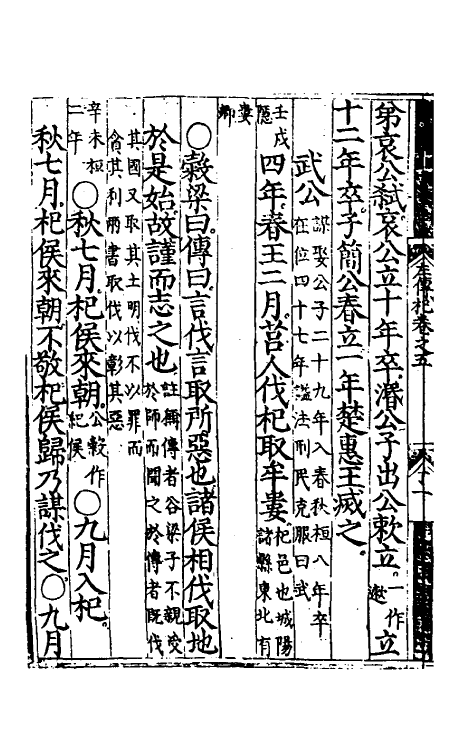 左傳杞卷之五
弟哀公弑哀公立十年卒湣公子出公敕立一作遬立
十二年卒子簡公春立一年楚惠王滅之
武公 謀娶公子二十九年入春秋桓八年卒在位四十七年謚法刑民克服曰武
壬戌隱四年春王二月莒人伐杞取牟婁杞邑也城陽諸縣東北有
婁鄉
○穀梁曰傳曰言伐言取所惡也諸侯相伐取地
於是始故謹而志之也註稱傳者谷梁子不親受於師而聞之於傳者既伐
其國又取其土明伐不以罪而貪其利兩書取伐以彰其惡
辛未桓二年○秋七月杞侯來朝公穀作紀侯○九月入杞
秋七月杞侯來朝不敬杞侯歸乃謀伐之○九月